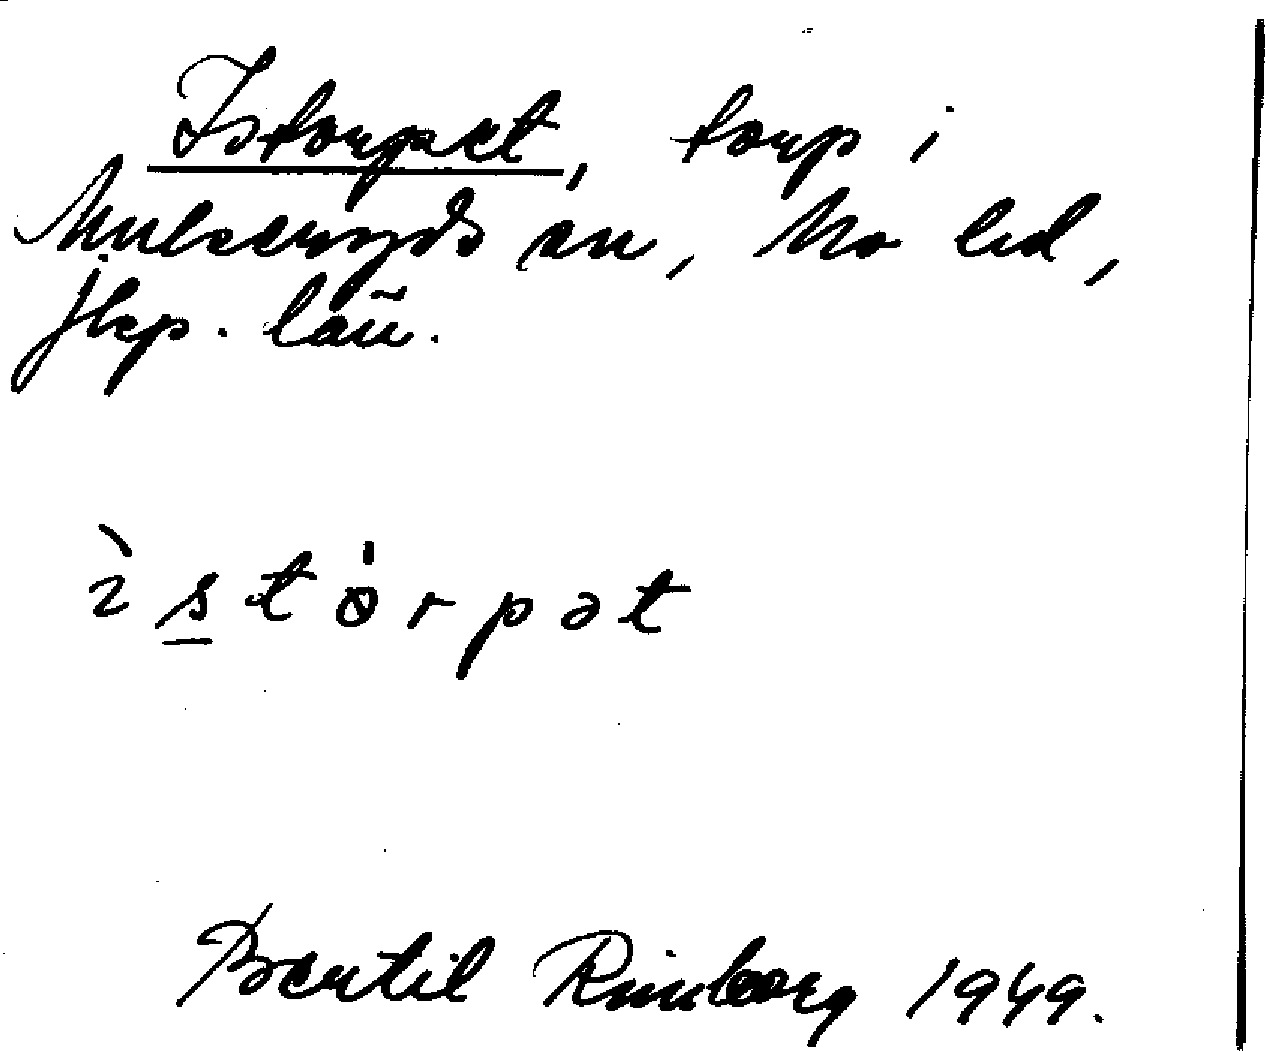 Istorpet, torp i
Mulseryds sn, Mo hd,
Jkp. län.
ìstǫ́rpət
Bertil Rimborg 1949.